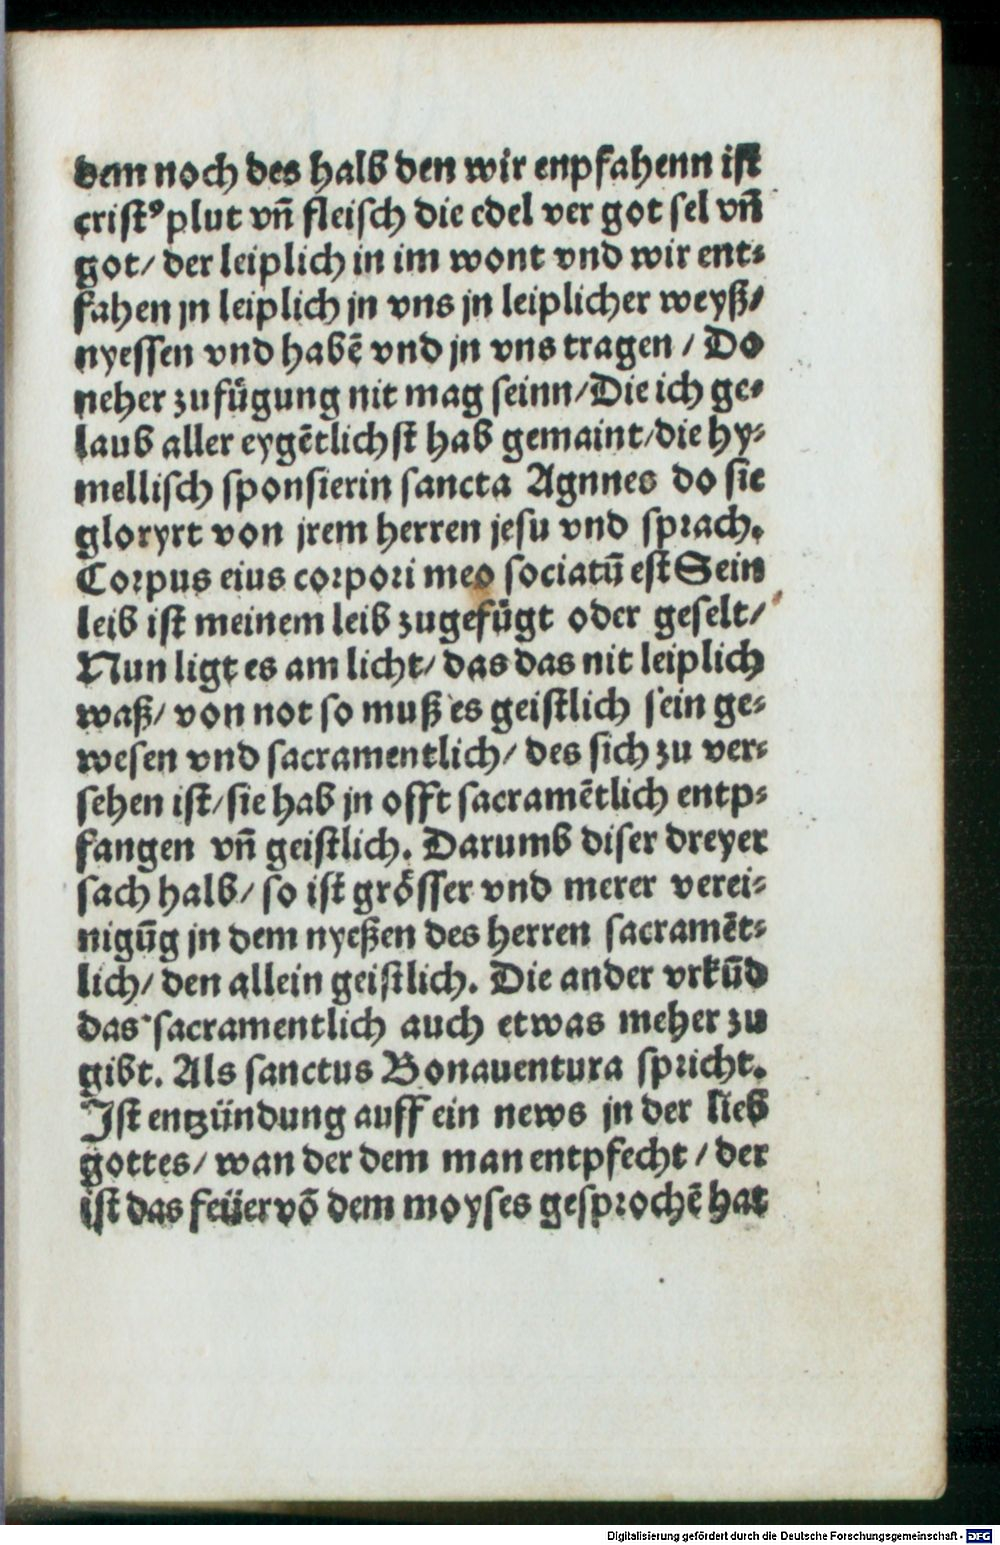 dem noch des halb den wir enpfahenn ist
cristꝰ plut vñ fleisch die edel ver got sel vñ
got/ der leiplich in im wont vnd wir ent⸗
fahen jn leiplich jn vns jn leiplicher weyß/
nyessen vnd habē vnd jn vns tragen / Do
neher zufügung nit mag seinn/Die ich ge⸗
laub aller eygētlichst hab gemaint/die hy⸗
mellisch sponsierin sancta Agnnes do sie
gloryrt von jrem herren jesu vnd sprach.
Corpus eius corpori meo sociatū est Sein
leib ist meinem leib zugefügt oder geselt/
Nun ligt es am licht/ das das nit leiplich
waß/ von not so muß es geistlich sein ge⸗
wesen vnd sacramentlich/ des sich zu ver⸗
sehen ist/sie hab jn offt sacramētlich entp⸗
fangen vñ geistlich. Darumb diser dreyer
sach halb/ so ist grösser vnd merer verei⸗
nigūg jn dem nyeßen des herren sacramēt⸗
lich/ den allein geistlich. Die ander vrkūd
das sacramentlich auch etwas meher zu
gibt. Als sanctus Bonauentura spricht.
Ist entzündung auff ein news jn der lieb
gottes/ wan der dem man entpfecht / der
ist das feüer vō dem moyses gesprochē hat
Digitalisierung gefördert durch die Deutsche Forschungsgemeinschaft - DFG